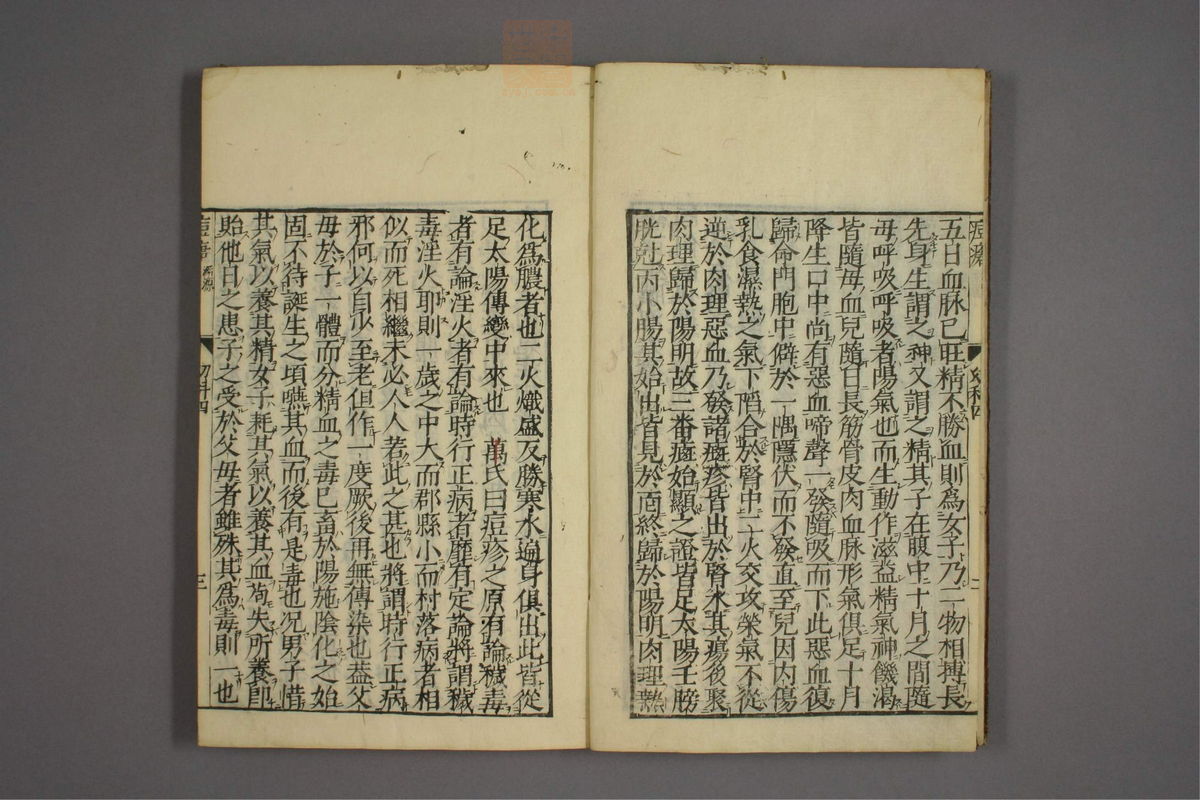 五日血脉已旺精不勝血則爲女子乃二物相搏長
先身生謂之神又謂之精其子在腹中十月之間隨
母呼吸呼吸者陽氣也而生動作滋益精氣神饑渴
皆隨母血兒隨日長筋骨皮肉血脉形氣俱足十月
降生口中尚有惡血啼聲一發隨吸而下此惡血復
歸命門胞中僻於一隅隱伏而不發直至兒因内傷
乳食濕熱之氣下䧟合於腎中二火交攻榮氣不從
逆於肉理惡血乃發諸癍疹皆出於腎水其瘍後聚
肉理歸於陽明故三番癍始顯之證皆足太陽壬膀
胱尅丙小腸其始出皆見於面終歸於陽明肉理熱
化爲膿者也二火熾盛反勝寒水遍身俱出此皆從
足太陽傳變中來也 萬氏曰痘疹之原有論穢毒
者有論淫火者有論時行正病者靡有定論將謂穢
毒淫火耶則一歲之中大而郡縣小而村落病者相
似而死相繼未必人人若此之甚也將謂時行正病
邪何以自少至老但作一度厥後再無傳染也葢父
母於子一體而分精血之毒已畜於陽施陰化之始
固不待誕生之頃嚥其血而後有是毒也况男子惜
其氣以養其精女子耗其氣以養其血苟失所養卽
貽他日之患子之受於父母者雖殊其爲毒則一也
幼科四
三